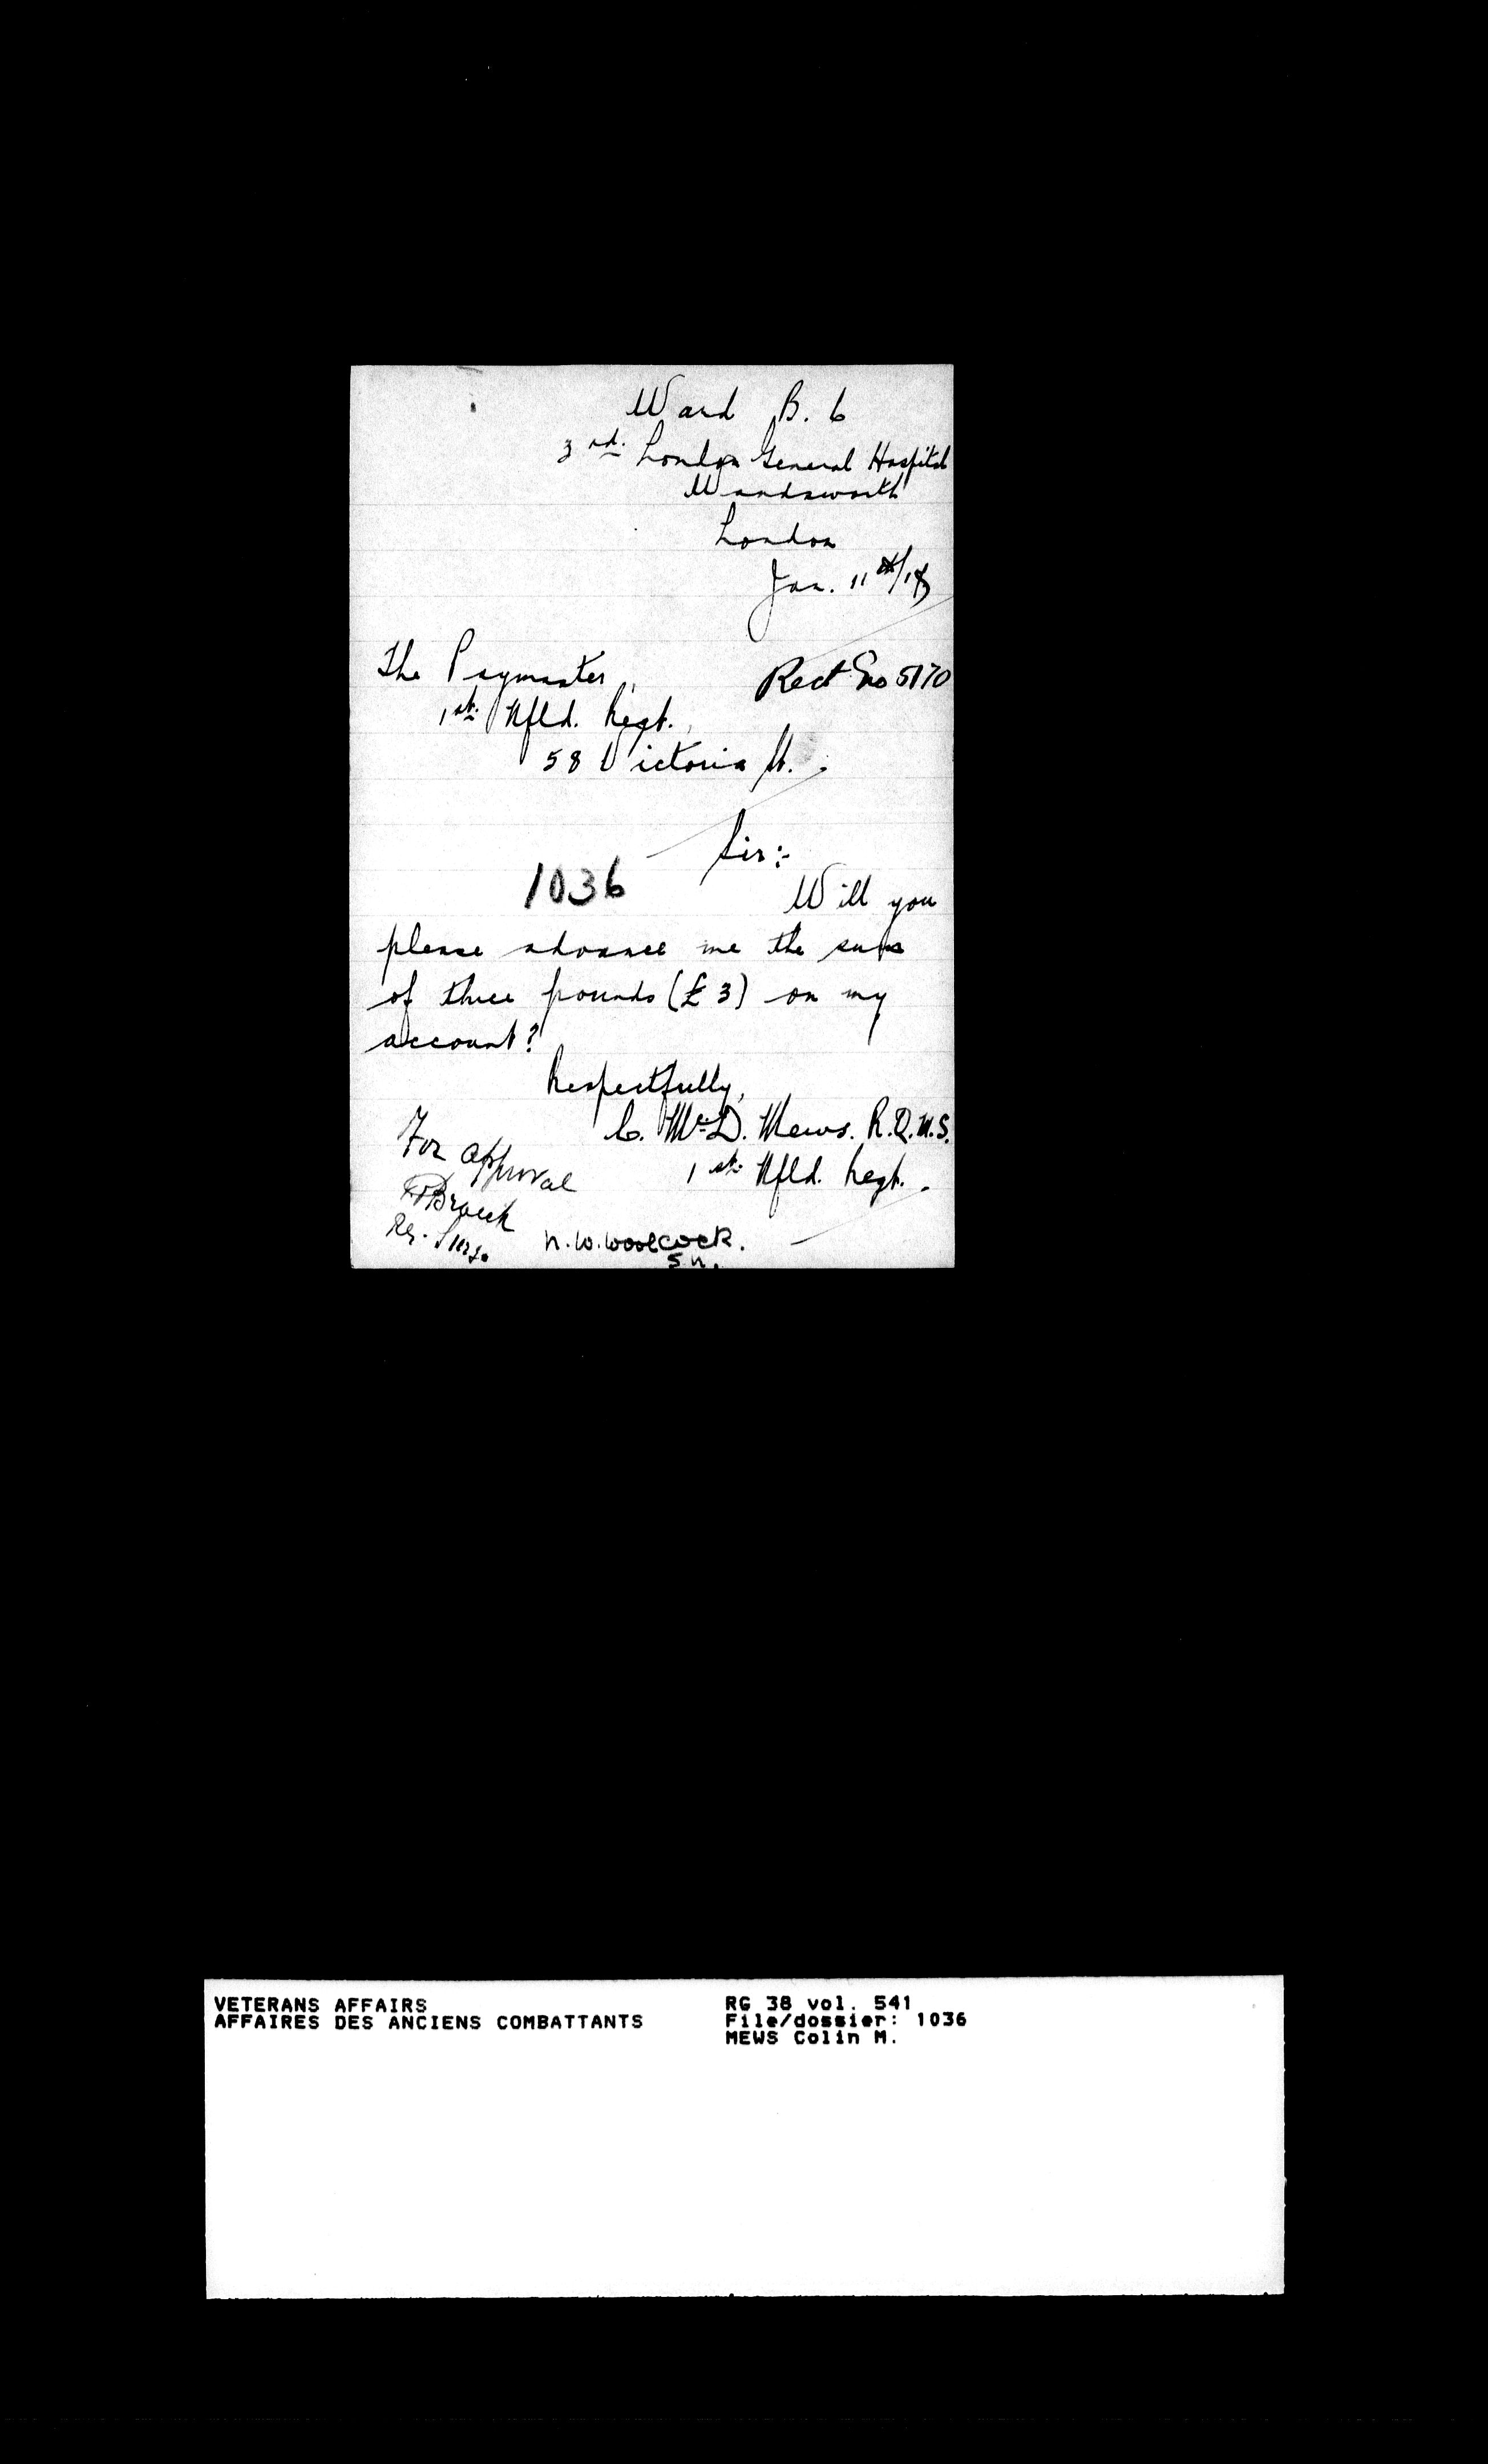 Ward B. 6
3rd. London General Hospital
Wandsworth
London
Jan. 11th/18
The Paymaster, Rect No 5170
1st. Nfld. Regt.,
58 Victoria St.
Sir:-
1036
Will you
please advance me the sum
of three pounds (£3) on my
account?
Respectfully,
C. McD. Mews. R.Q.M.S.
1st. Nfld. Regt.
For approval
N.W. Woolcock.
VETERANS AFFAIRS
AFFAIRES DES ANCIENS COMBATTANTS
RG 38 vol. 541
File/dossier: 1036
MEWS Colin M.